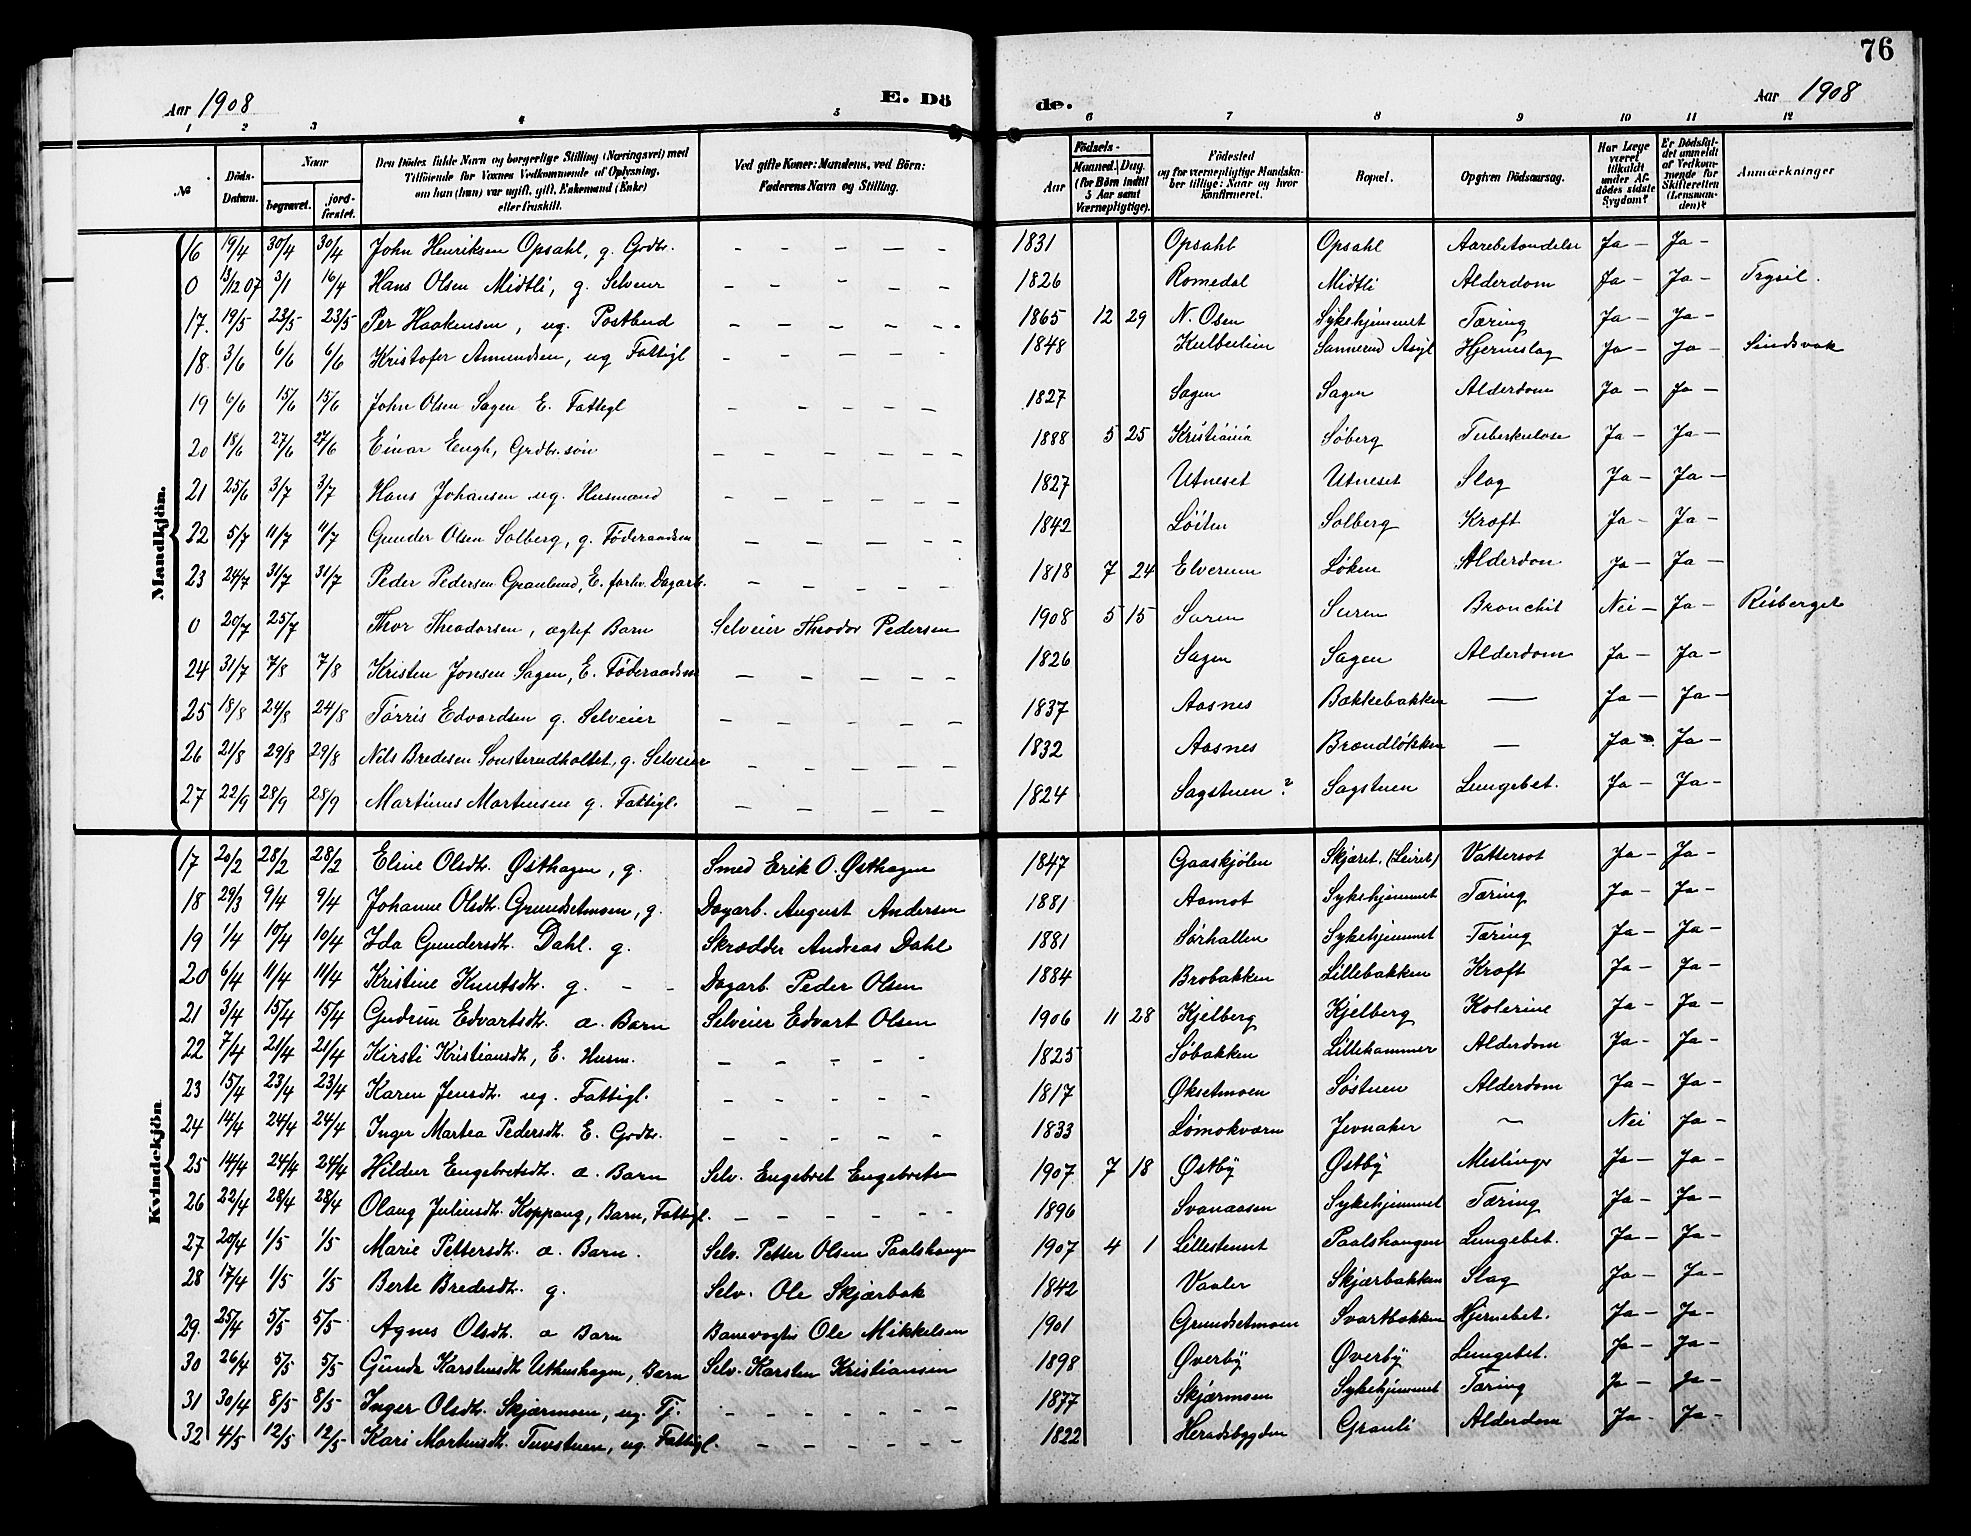 76
Aar 1908 E. Dö de. Aar 1908
1 2 3 4 5 6 7 8 9 10 11 12
№ Döds-Datum. Naar begravet. jord-fæstet. Den Dödes fulde Navn og borgerlige Stilling (Næringsvei) med Tilföiende for Voxnes Vedkommende af Oplysning, om han (hun) var ugift, gift, Enkemand (Enke) eller fraskilt. Ved gifte Koner: Mandens, ved Börn: Faderens Navn og Stilling. Födsels- Aar Maaned. Dag. (for Börn indtil 5 Aar samt Værnepligtige). Födested og for værnepligtige Mandskaber tillige: Naar og hvor konfirmeret. Bopæl. Opgiven Dödsaarsag. Har Læge været tilkaldt under Afdödes sidste Sygdom? Er Dödsfaldet anmeldt af Vedkommende for Skifteretten (Lensmanden)? Anmærkninger
Mandkjön.
16 19/4 30/4 30/4 John Henriksen Opsahl, g. Grdbr. – – – – – 1831 Opsahl Opsahl Aarebetændelse Ja – Ja –
0 13/12 07 3/1 16/4 Hans Olsen Midtli, g. Selveier – – – – – 1826 Romedal Midtli Alderdom Ja – Ja – Trysil.
17. 19/5 23/5 23/5 Per Haakensen, ug. Postbud – – – – – 1865 12 29 N. Osen Sykehjemmet Tæring Ja – Ja –
18 3/6 6/6 6/6 Kristofer Amundsen, ug Fattigl – – – – 1848 Sannerud Asyl Hjerneslag Ja – Ja – Sindsvak
19 6/6 15/6 15/6 John Olsen Sagen E. Fattigl – – – – – 1827 Sagen Sagen Alderdom Ja – Ja –
20 18/6 27/6 27/6 Einar Engh, Grdbr. søn – – – – – – 1888 5 25 Kristiania Søberg Tuberkulose Ja – Ja –
21 25/6 3/7 3/7 Hans Johansen ug. Husmand – – – – – – 1827 Utneset Utneset Slag Ja – Ja –
22 5/7 11/7 11/7 Gunder Olsen Solberg, g. Føderaadsm – – – – – 1842 Løiten Solberg Kræft Ja – Ja –
23 24/7 31/7 31/7 Peder Pedersen Granlund, E. forhv. Dagarb. – – – – – 1818 7 24 Elverum Løken Alderdom Ja – Ja –
0 20/7 25/7 Thor Theodorsen, ægtef Barn Selveier Theodor Pedersen 1908 5 15 Suren Suren Bronchit Nei – Ja – Risberget
24 31/7 7/8 7/8 Kristen Jonsen Sagen, E. Føderaadsm – – – – – 1826 Sagen Sagen Alderdom Ja – Ja –
25 18/8 24/8 24/8 Tørris Edvardsen g. Selveier – – – – – 1837 Aasnes Bækkebakken — Ja – Ja –
26 21/8 29/8 29/8 Nils Bredesen Sønsterudholtet, g. Selveier – – – – – 1832 Aasnes Brændløkken — Ja – Ja –
27 22/9 28/9 28/9 Martinus Martinsen g. Fattigl. – – – – – 1824 Sagstuen? Sagstuen Lungebet. Ja – Ja –
Kvindekjön
17 20/2 28/2 28/2 Eline Olsdtr. Østhagen, g. Smed Erik O. Østhagen 1847 Gaaskjølen Skjæret. (Leiret) Vattersot Ja – Ja –
18 29/3 9/4 9/4 Johanne Olsdtr. Grundsetmoen, g. Dagarb. August Andersen 1881 Aamot Sykehjemmet Tæring Ja – Ja –
19 1/4 10/4 10/4 Ida Gundersdtr. Dahl. g. Skrædder Andreas Dahl 1881 Sørhallen Sykehjemmet Tæring Ja – Ja –
20 6/4 11/4 11/4 Kristine Knutsdtr. g. – – Dagarb. Peder Olsen 1884 Brobakken Lillebakken Kræft Ja – Ja –
21 3/4 15/4 15/4 Gudrun Edvartsdtr. æ. Barn Selveier Edvart Olsen 1906 11 28 Kjelberg Kjelberg Kolerine Ja – Ja –
22 7/4 21/4 21/4 Kirsti Kristiansdtr, E. Husm. – – – – – 1825 Søbakken Lillehammer Alderdom Ja – Ja –
23 15/4 23/4 23/4 Karen Jensdtr. ug. Fattigl. – – – – – 1817 Øksetmoen Søstuen Alderdom Ja – Ja –
24 14/4 24/4 24/4 Inger Martea Pedersdtr. E. Grdbr. – – – – – 1833 Lømokværn Jevnaker ~ Nei Ja –
25 14/4 24/4 24/4 Hildur Engebretsdtr. æ. Barn Selv. Engebret Engebretsen 1907 7 18 Østby Østby Meslinger Ja – Ja –
26 22/4 28/4 28/4 Olaug Juliusdtr. Koppang, Barn, Fattigl. – – – – – – 1896 Svanaasen Sykehjemmet Tæring Ja – Ja –
27 20/4 1/5 1/5 Marie Pettersdtr. æ. Barn. Selv. Petter Olsen Paalshaugen 1907 4 1 Lillestemet Paalshaugen Lungebet. Ja – Ja –
28 17/4 1/5 1/5 Berte Bredesdtr. g. Selv. Ole Skjærbak 1842 Vaaler Skjærbakken Slag Ja – Ja –
29. 25/4 5/5 5/5 Agnes Olsdtr. æ Barn Banevogter Ole Mikkelsen 1901 Grundsetmoen Svartbakken Hjernebet. Ja – Ja –
30 26/4 5/5 5/5 Gunda Karstensdtr Uthushagen, Barn Selv. Karsten Kristiansen 1898 Øverby Øverby Lungebet. Ja – Ja –
31 30/4 8/5 8/5 Inger Olsdtr. Skjærmoen, ug. Tj. – – – – – – 1877 Skjærmoen Sykehjemmet Tæring Ja – Ja –
32 4/5 12/5 12/5 Kari Martinsdtr. Tuvstuen, ug. Fattigl. – – – – – 1822 Heradsbygden Grauli Alderdom Ja – Ja –